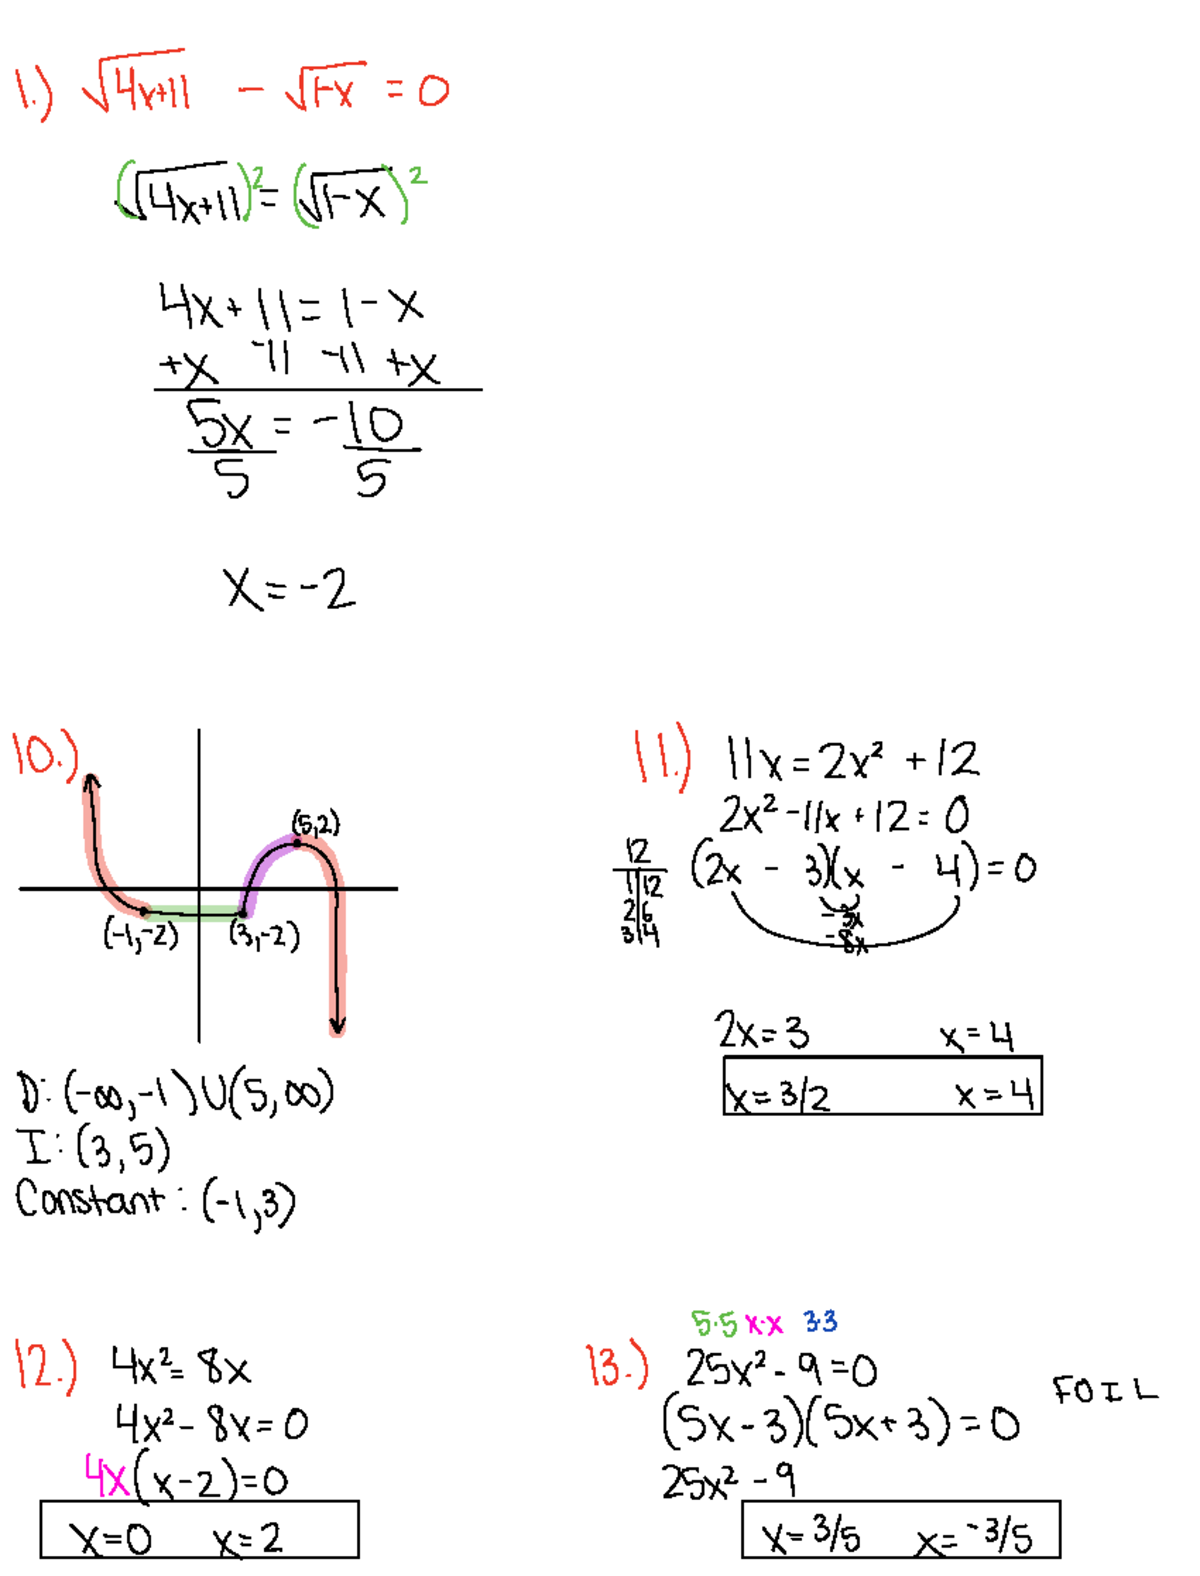 1.) √4x+11 - √1-x = 0
(√4x+11)² = (√1-x)²
4x+11 = 1-x
+x -11 -11 +x
5x = -10
5 5
x = -2
10.)
(5,2)
(-1,-2) (3,-2)
D: (-∞,-1)U(5,∞)
I: (3,5)
Constant: (-1,3)
11.) 11x = 2x² + 12
2x² - 11x + 12 = 0
(2x - 3)(x - 4) = 0
12
1 12
2 6
3 4
-3x
-8x
2x = 3 x = 4
x = 3/2 x = 4
12.) 4x² = 8x
4x² - 8x = 0
4x(x-2) = 0
x=0 x=2
5·5 x·x 3·3
13.) 25x² - 9 = 0
(5x-3)(5x+3) = 0 FOIL
25x² - 9
x = 3/5 x = -3/5